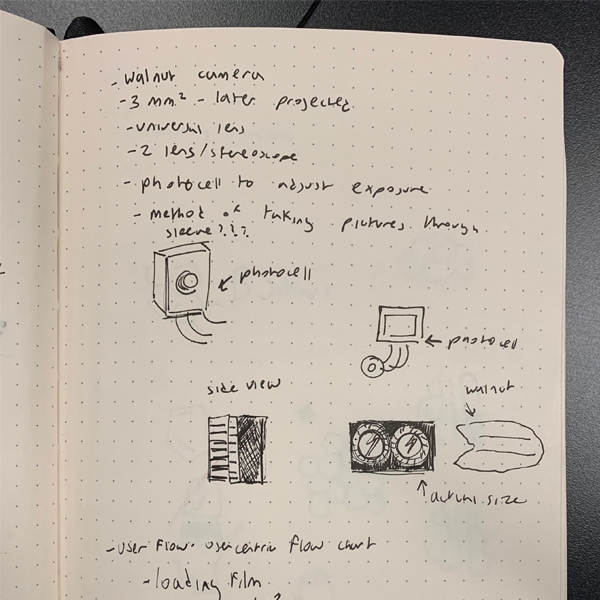 - walnut camera
- 3 mm² - later projected
- universal lens
- 2 lens/stereoscope
- photocell to adjust exposure
- method of taking pictures through
sleeve???
photocell
photocell
side view
walnut
actual size
- user flow - usercentric flow chart
- loading film